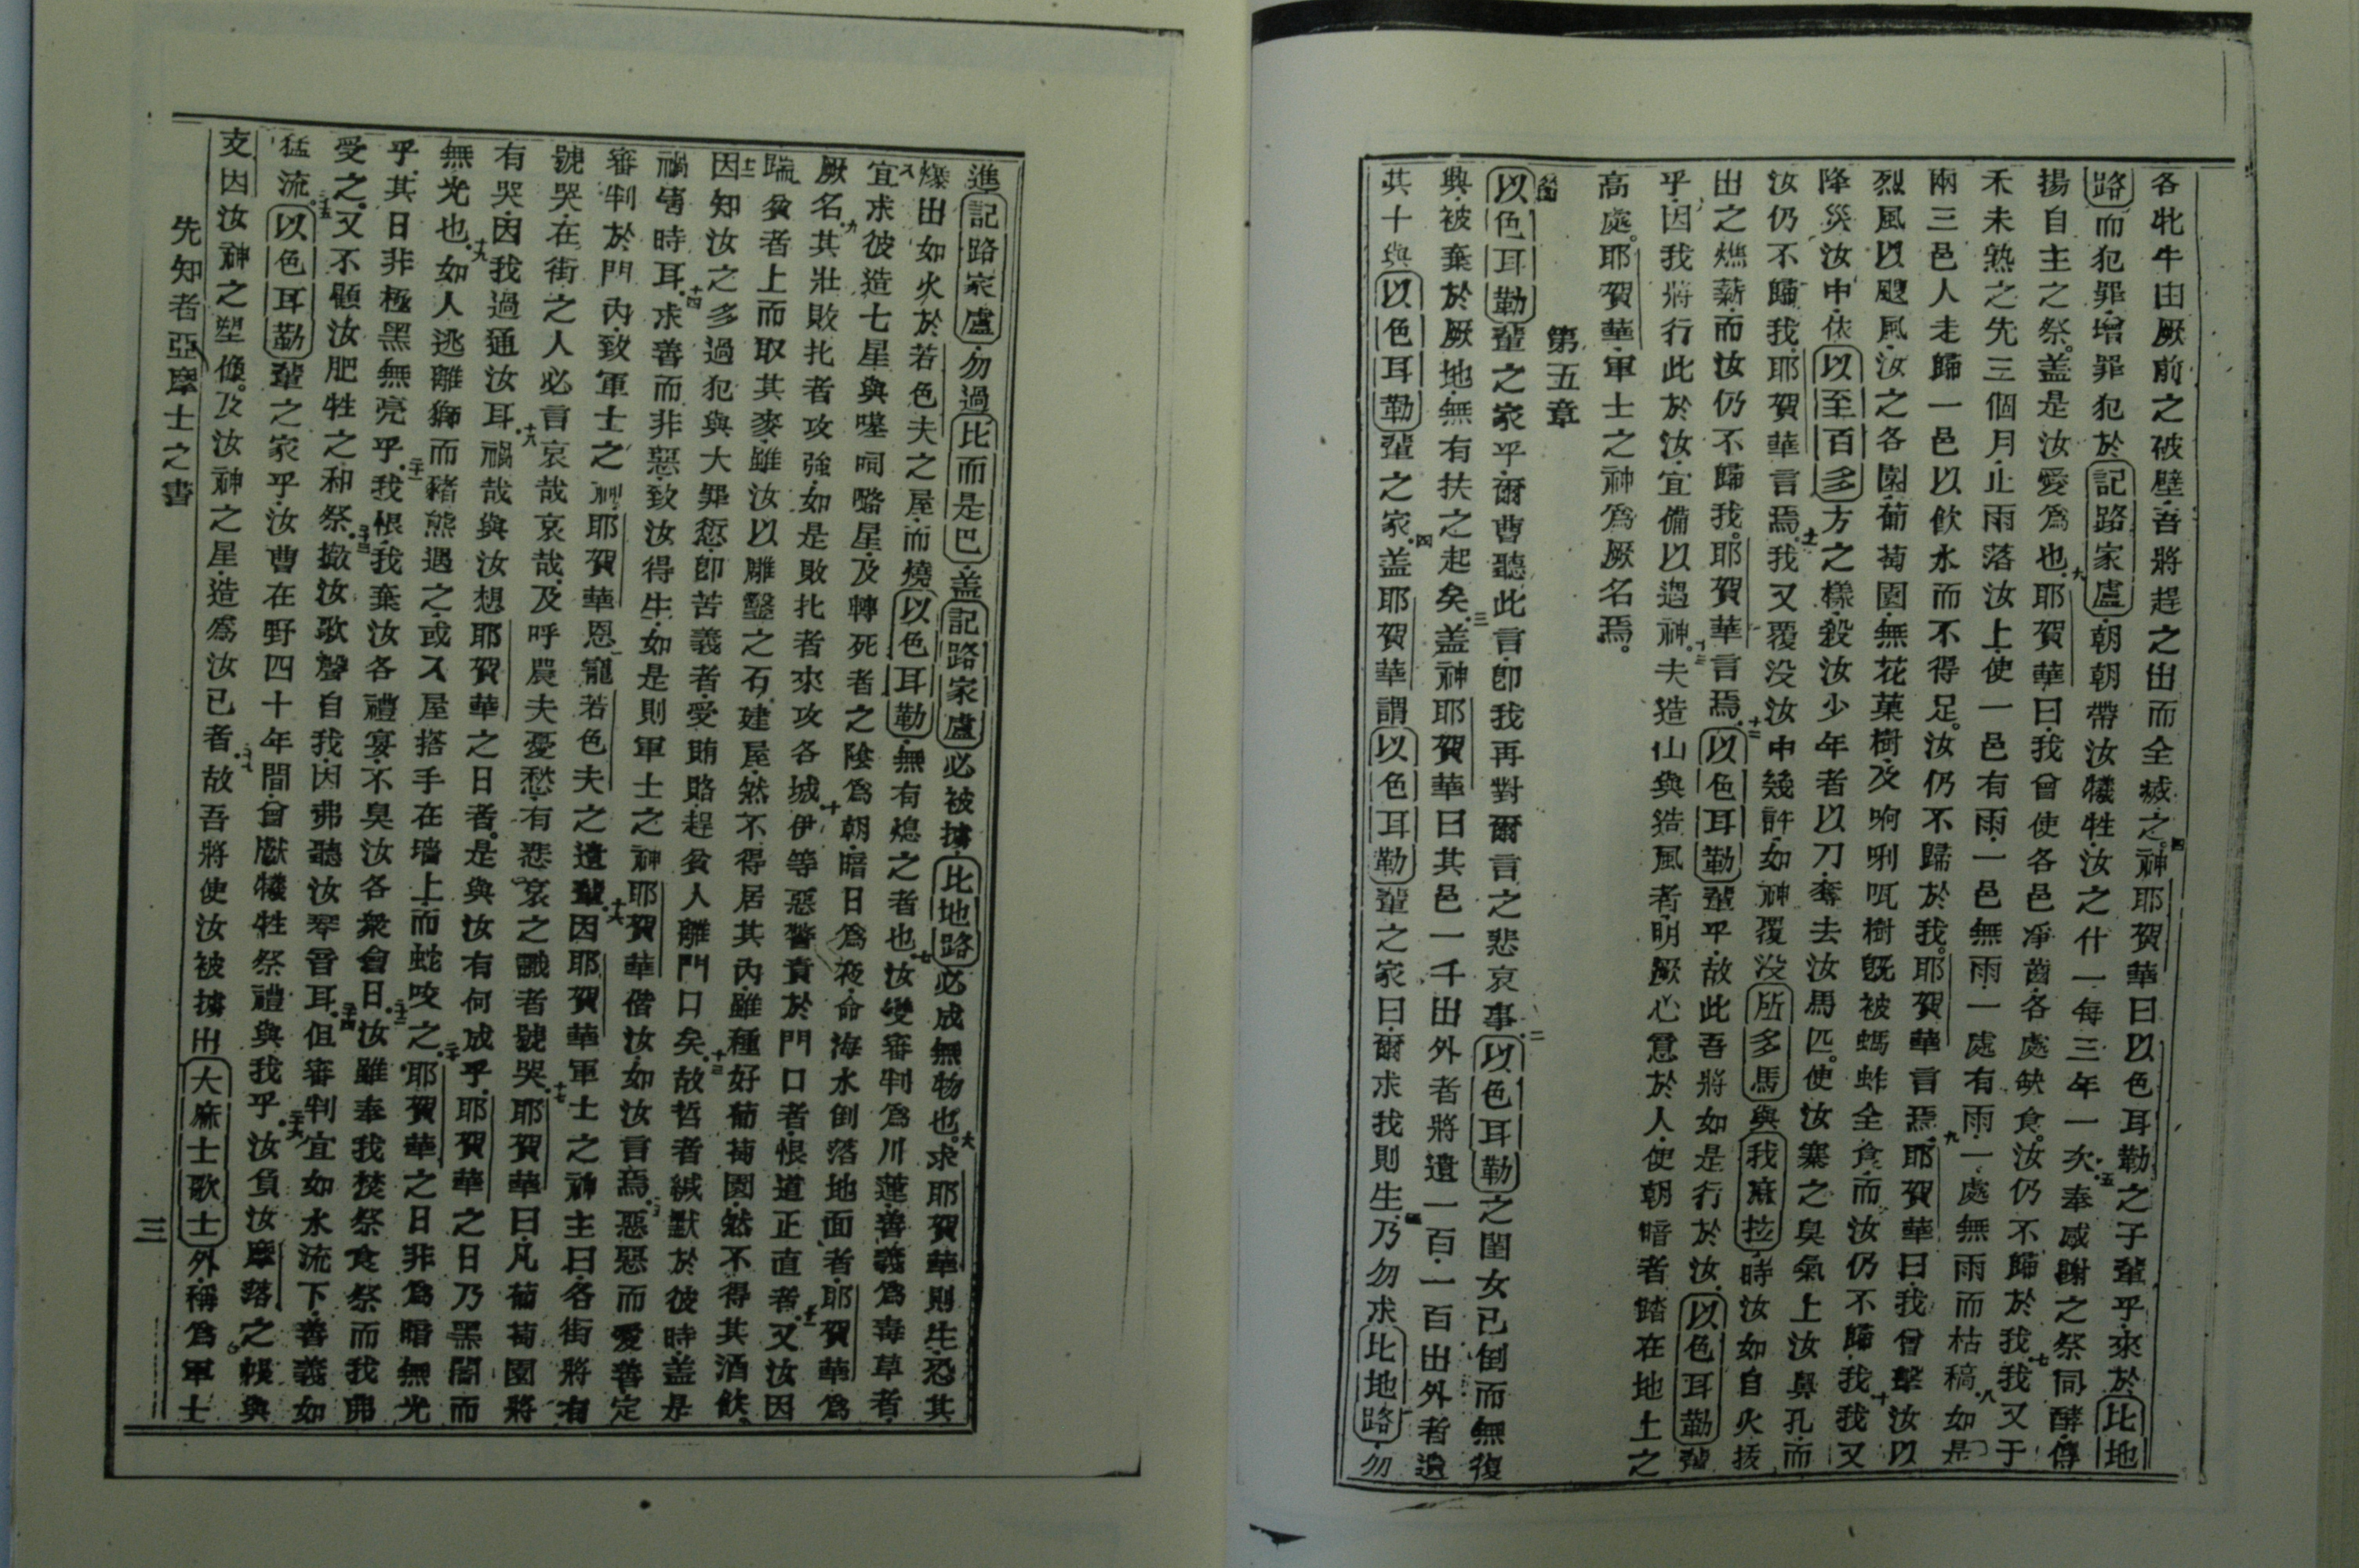 各牝牛由厥前之破壁吾將趕之出而全滅之。四神耶賀華曰以色耳勒之子輩乎來於比地
路而犯罪增罪犯於記路家盧朝朝帶汝犧牲汝之什一每三年一次五奉感謝之祭同酵傳
揚自主之祭。盖是汝愛為也九耶賀華曰我曾使各邑凈齒各處缺食。汝仍不歸於我七我又于
禾未熟之先三個月止雨落汝上使一邑有雨一邑無雨一處有雨一處無雨而枯稿八如是
兩三邑人走歸一邑以飲水而不得足。汝仍不歸於我。耶賀華言焉九耶賀華曰我曾擊汝以
烈風以颶風汝之各園葡萄園無花菓樹及啊唎㕽樹旣被螞蚱全食而汝仍不歸我十我又
降災汝中依以至百多方之樣殺汝少年者以刀奪去汝馬匹。使汝寨之臭氣上汝鼻孔而
汝仍不歸我耶賀華言焉。十一我又覆没汝中幾許如神覆没所多馬與我麻拉時汝如自火拔
出之燋薪而汝仍不歸我。耶賀華言焉十二以色耳勒輩乎故此吾將如是行於汝以色耳勒輩
乎因我將行此於汝宜備以遇神。十三夫造山與造風者明厥心意於人使朝暗者踏在地土之
高處。耶賀華軍士之神為厥名焉。
第五章
以色耳勒輩之家乎爾曹聽此言卽我再對爾言之悲哀事二以色耳勒之閨女已倒而無復
興被棄於厥地無有扶之起矣三盖神耶賀華曰其邑一千出外者將遺一百一百出外者遺
其十與以色耳勒輩之家四盖耶賀華謂以色耳勒輩之家曰爾求我則生五乃勿求比地路勿
進記路家盧勿過比而是巴盖記路家盧必被擄比地路必成無物也。六求耶賀華則生恐其
爆出如火於若色夫之屋而燒以色耳勒無有熄之者也七汝變審判為川蓮善義為毒草者
八宜求彼造七星與噻呞咯星及轉死者之陰為朝暗日為夜命海水倒落地面者耶賀華為
厥名九其壯敗扎者攻強如是敗扎者來攻各城十伊等惡督責於門口者恨道正直者十一又汝因
踹貧者上而取其麥雖汝以雕鑿之石建屋然不得居其內雖種好葡萄園然不得其酒飲
十二因知汝之多過犯與大罪愆卽苦義者受賄賂趕貧人離門口矣十三故哲者緘默於彼時盖是
禍害時耳十四求善而非惡致汝得生如是則軍士之神耶賀華偕汝如汝言焉十五惡惡而愛善定
審判於門內致軍士之神耶賀華恩寵若色夫之遺輩十六因耶賀華軍士之神主曰各街將有
號哭在街之人必言哀哉哀哉及呼農夫憂愁有悲哀之藝者號哭十七耶賀華曰凡葡萄園將
有哭因我過通汝耳十八禍哉與汝想耶賀華之日者。是與汝有何成乎耶賀華之日乃黑闇而
無光也十九如人逃離獅而豬熊遇之或入屋搭手在墻上而蛇咬之二十耶賀華之日非為暗無光
乎其日非極黑無亮乎二十一我恨我棄汝各禮宴不臭汝各衆會日二十二汝雖奉我焚祭食祭而我弗
受之。又不顧汝肥牲之和祭二十三撤汝歌聲自我因弗聽汝琴音耳二十四但審判宜如水流下善義如
猛流。二十五以色耳勒輩之家乎汝曹在野四十年間曾獻犧牲祭禮與我乎二十六汝負汝摩落之帳與
支因汝神之塑像。及汝神之星造為汝已者二十七故吾將使汝被擄出大麻士歌士外稱為軍士
先知者亞摩士之書
三